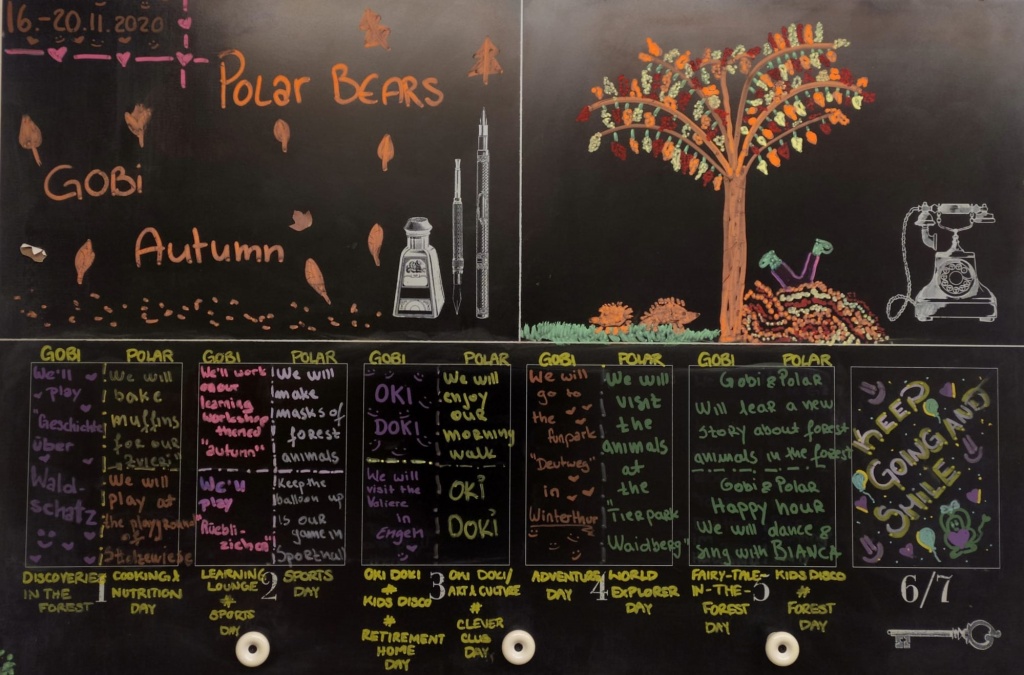 16.-20.11.2020
Polar BEARS
GOBi
Autumn
GOBI
POLAR
We'll
play
"Geschichte
über
Wald-
schatz
We will
bake
muffins
for our
"Zvieri"
We will
play at
the playground
DISCOVERIES
IN THE
FOREST
COOKING &
NUTRITION
DAY
1
GOBI
POLAR
We'll work
on our
learning
workshop
themed
"autumn"
We'll
play
"Rüebli-
zieha"
We will
make
masks of
forest
animals
Keep the
balloon up
is our
game in
Sporthall
LEARNING
LOUNGE
#
SPORTS
DAY
SPORTS
DAY
2
GOBI
POLAR
OKI
DOKI
We will
visit the
Voliere
in
Engen
We will
enjoy
our
morning
walk
OKI
DOKI
OKI DOKI
#
KIDS DISCO
#
RETIREMENT
HOME
DAY
OKI DOKI/
ART & CULTURE
#
CLEVER
CLUB
DAY
3
GOBI
POLAR
We will
go to
the
funpark
"Deutweg"
in
Winterthur
We will
visit
the
animals
at
the
"Tierpark
Waidberg"
ADVENTURE
DAY
WORLD
EXPLORER
DAY
4
GOBI
POLAR
Gobi & Polar
Will lear a new
story about forest
animals in the forest
Gobi & Polar
Happy hour
We will dance &
sing with BIANCA
FAIRY-TALE-
IN-THE-
FOREST
DAY
KIDS DISCO
#
FOREST
DAY
5
KEEP
GOING AND
SMILE
6/7